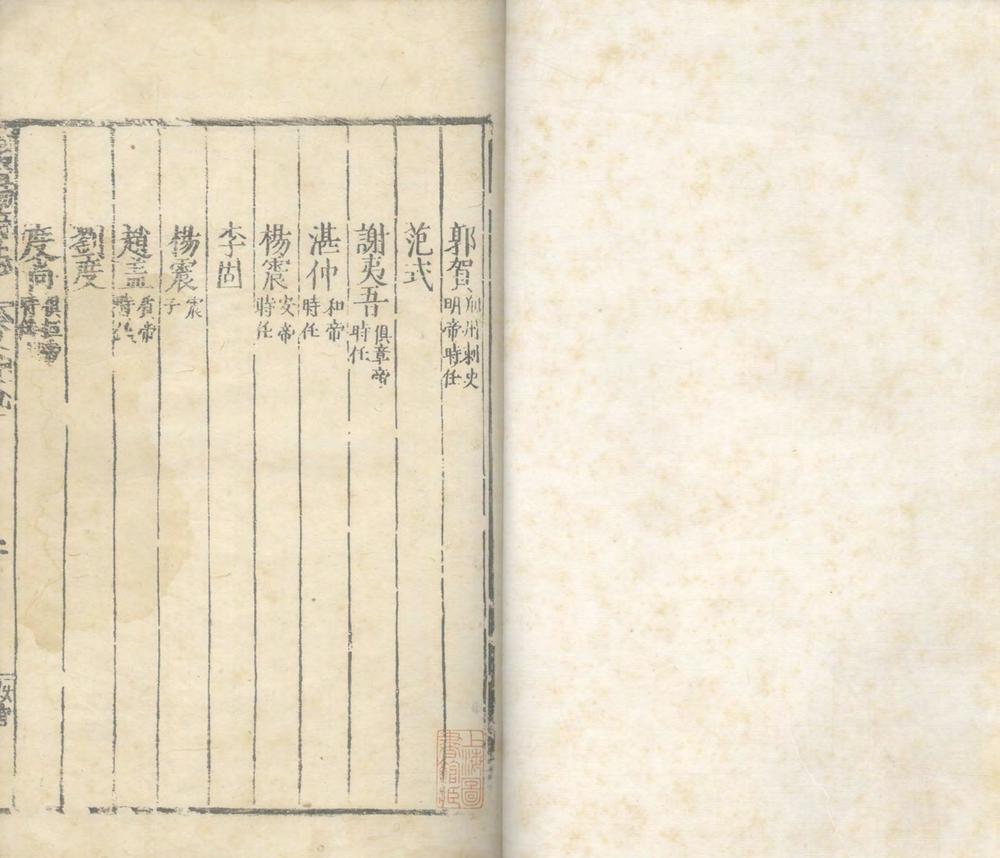 郭賀 荆州刺史明帝時任
范式
謝夷吾 俱章帝時任
湛仲 和帝時任
楊震 安帝時任
李固
楊震 震子
趙盖 質帝時
劉度
度尚 俱桓帝時任
上海圖書館